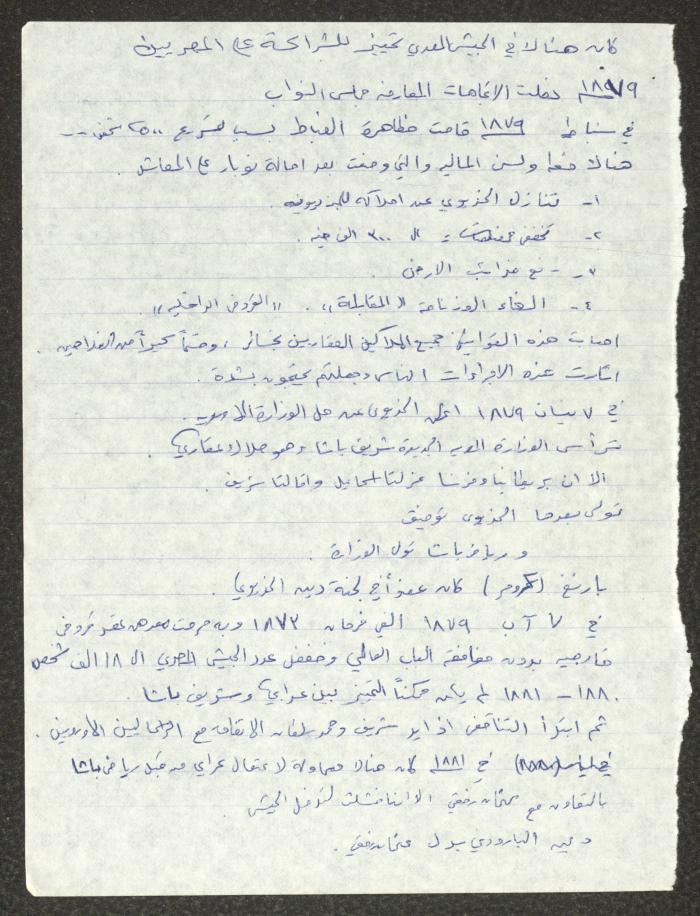 كان هنالك في الجيش المصري تمييز للشراكسة على المصريين
١٨٧٩ دخلت الاتجاهات المعارضة مجلس النواب
في شباط ١٨٧٩ قامت مظاهرة الضباط بسبب تسريح ٢٥٠٠ شخص --
هنالك ولسن المالية والتي وضعت بعد احالة نوبار على المعاش .
١- تنازل الخديوي عن املاكه
٢- تخفض الـ ٣٠٠ الف جنيه .
٣- رفع ضرائب الارض .
٤- الغاء "المقابلة" . "القروض الداخلية"
اصابت هذه القوانين جميع الملاكين العقاريين بخسائر ، وقسماً كبيراً من الفلاحين .
اثارت هذه الاجراءات الناس وجعلتهم يحتجون بشدة .
في ٧ نيسان ١٨٧٩ اعلن الخديوي عن حل الوزارة الاوروبية .
ترأس الوزارة الجديدة شريف باشا وهو ملاك عقاري
الا ان بريطانيا وفرنسا عزلتا اسماعيل واقالتا شريف .
تولى بعدها الخديوي توفيق
و رياض باشا تولى الوزارة .
بارنغ (كرومر) كان عضواً في لجنة دين الخديوي .
في ٧ آب ١٨٧٩ ألغي فرمان ١٨٧٣ وبه مصر من عقد قروض
خارجيه بدون موافقة الباب العالي وخفض عدد الجيش المصري الى ١٨ الف شخص
١٨٨٠ - ١٨٨١ لم يكن ممكناً التمييز بين عرابي وشريف باشا .
ثم ابتدأ التناقض اذ ايد شريف الاتفاق مع الرأسماليين الاوروبيين .
في ١٨٨١ كان هنالك محاولة لاعتقال عرابي من قبل رياض باشا
بالتعاون مع عثمان رفقي الا انها فشلت لتدخل الجيش
وعين البارودي بدل عثمان رفقي .